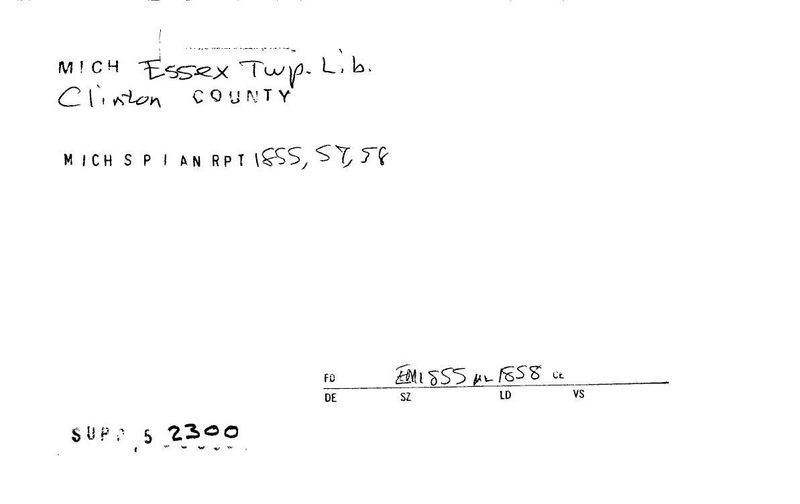 MICH Essex Twp. Lib.
Clinton COUNTY
MICH S P I AN RPT 1855, 57, 58
FD EM1855 ML 1858 CE
DE SZ LD VS
SUPP. 5 2300